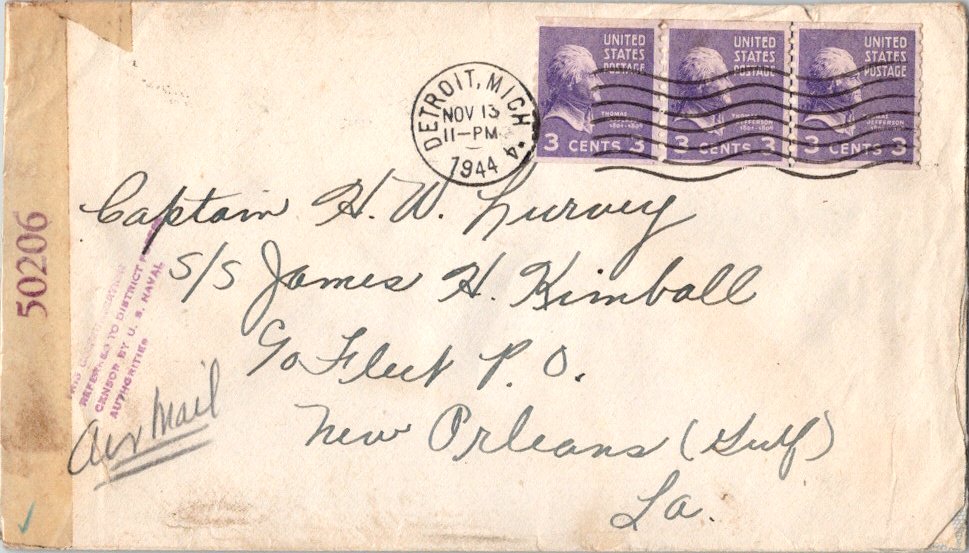 UNITED STATES POSTAGE
THOMAS JEFFERSON 1801-1809
3 CENTS 3
UNITED STATES POSTAGE
THOMAS JEFFERSON 1801-1809
3 CENTS 3
UNITED STATES POSTAGE
THOMAS JEFFERSON 1801-1809
3 CENTS 3
DETROIT, MICH
NOV 13
11-PM
1944
4
Captain H. W. Lurvey
S/S James H. Kimball
c/o Fleet P. O.
New Orleans (Gulf)
La.
50206
THIS
REFERRED TO DISTRICT
CENSOR BY U. S. NAVAL
AUTHORITIES
Air Mail